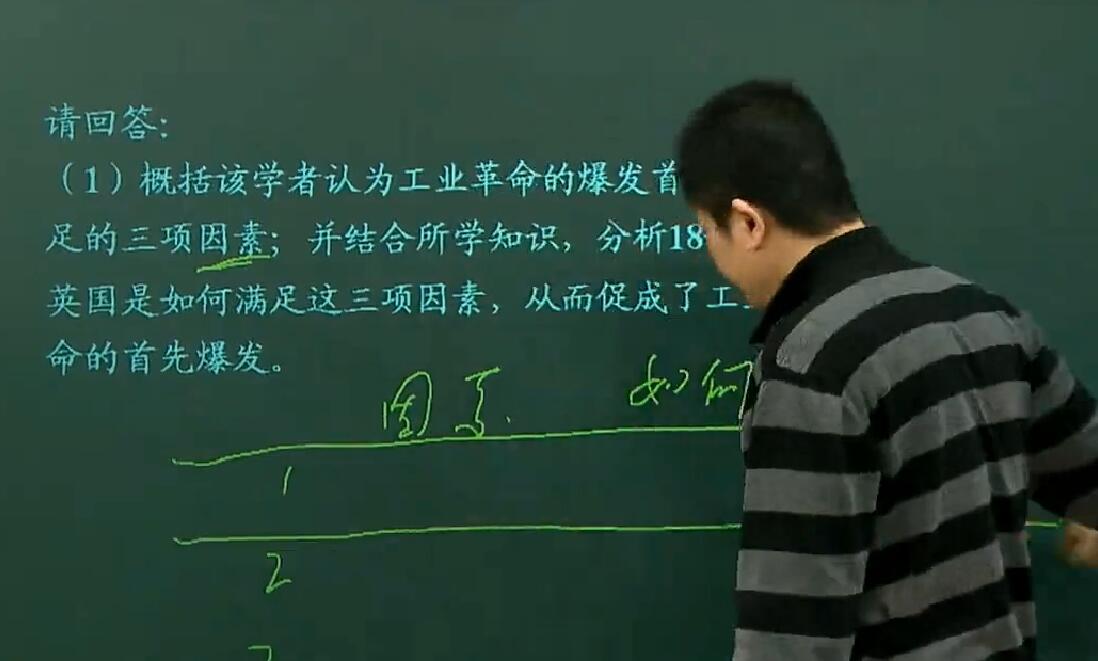 请回答:
（1）概括该学者认为工业革命的爆发首
足的三项因素；并结合所学知识，分析18
英国是如何满足这三项因素，从而促成了工
命的首先爆发。
因素 如何
1
2